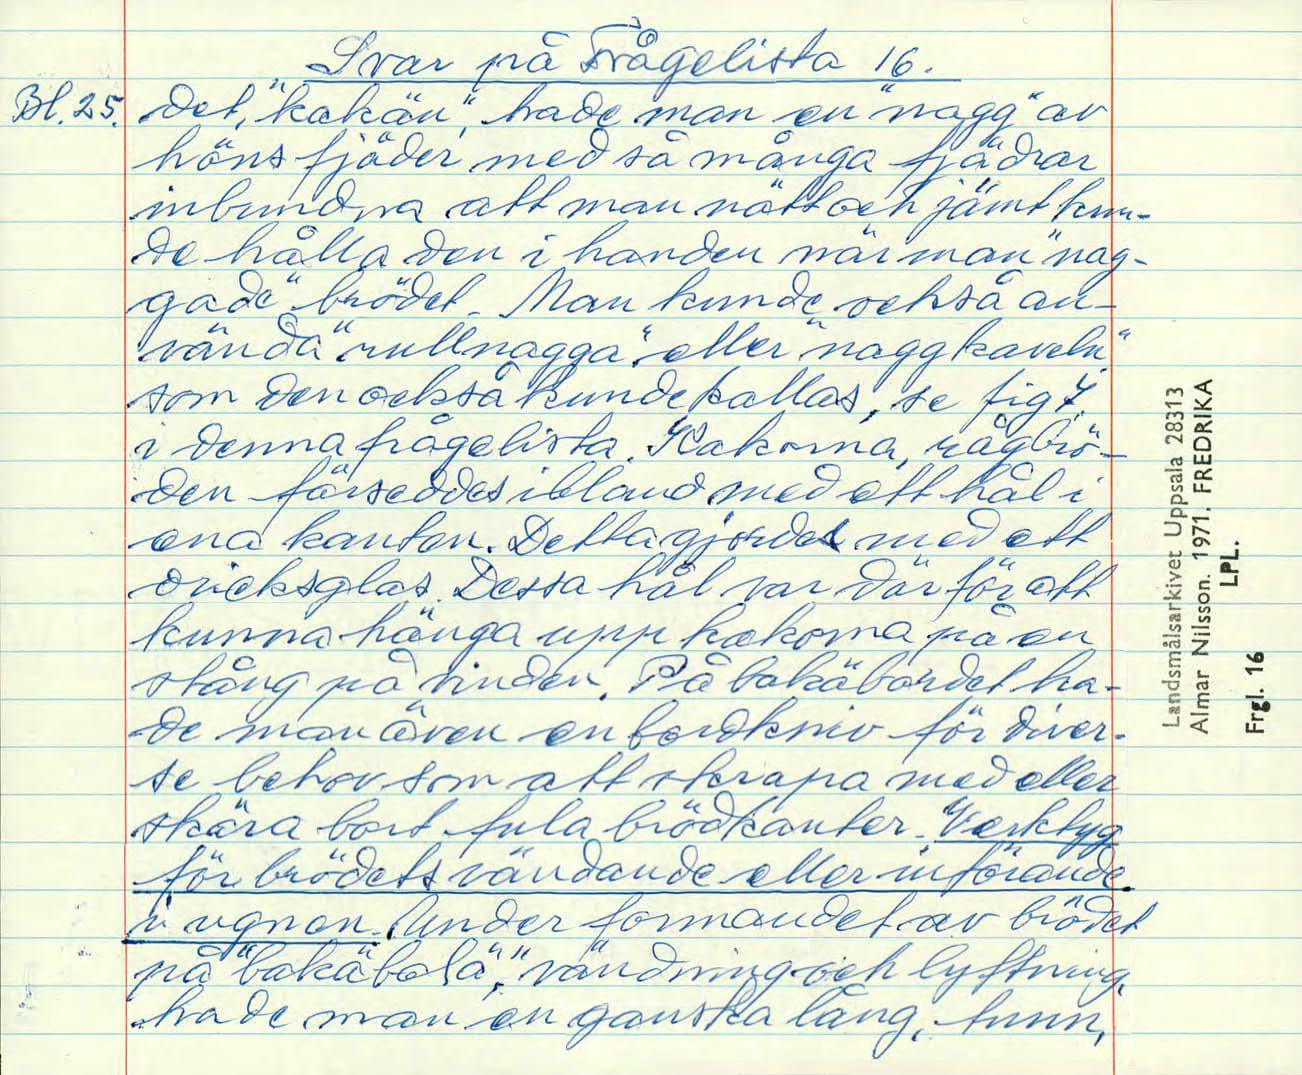 Svar på Frågelista 16.
Bl. 25. det, "kakän", hade man en "nagg" av
höns fjäder med så många fjädrar
inbundna att man nätt och jämt kun-
de hålla den i handen när man "nag-
gade" brödet. Man kunde också an-
vända "rullnagga" eller "naggkaveln"
som den också kunde kallas, se fig 7.
i denna frågelista. Kakorna, rågbrö-
den förseddes ibland med ett hål i
ena kanten. Detta gjordes med ett
dricksglas. Dessa hål var där för att
kunna hänga upp kakorna på en
stång på vinden. På bakäbordet ha-
de man även en bordkniv för diver-
se behov som att skrapa med eller
skära bort fula brödkanter. Verktyg
för brödets vändande eller införande
i ugnen. Under formandet av brödet
på "bakäbolä", vändning och lyftning,
hade man en ganska lång, tunn,
Landsmålsarkivet Uppsala 28313
Almar Nilsson. 1971. FREDRIKA
LPL.
Frgl. 16